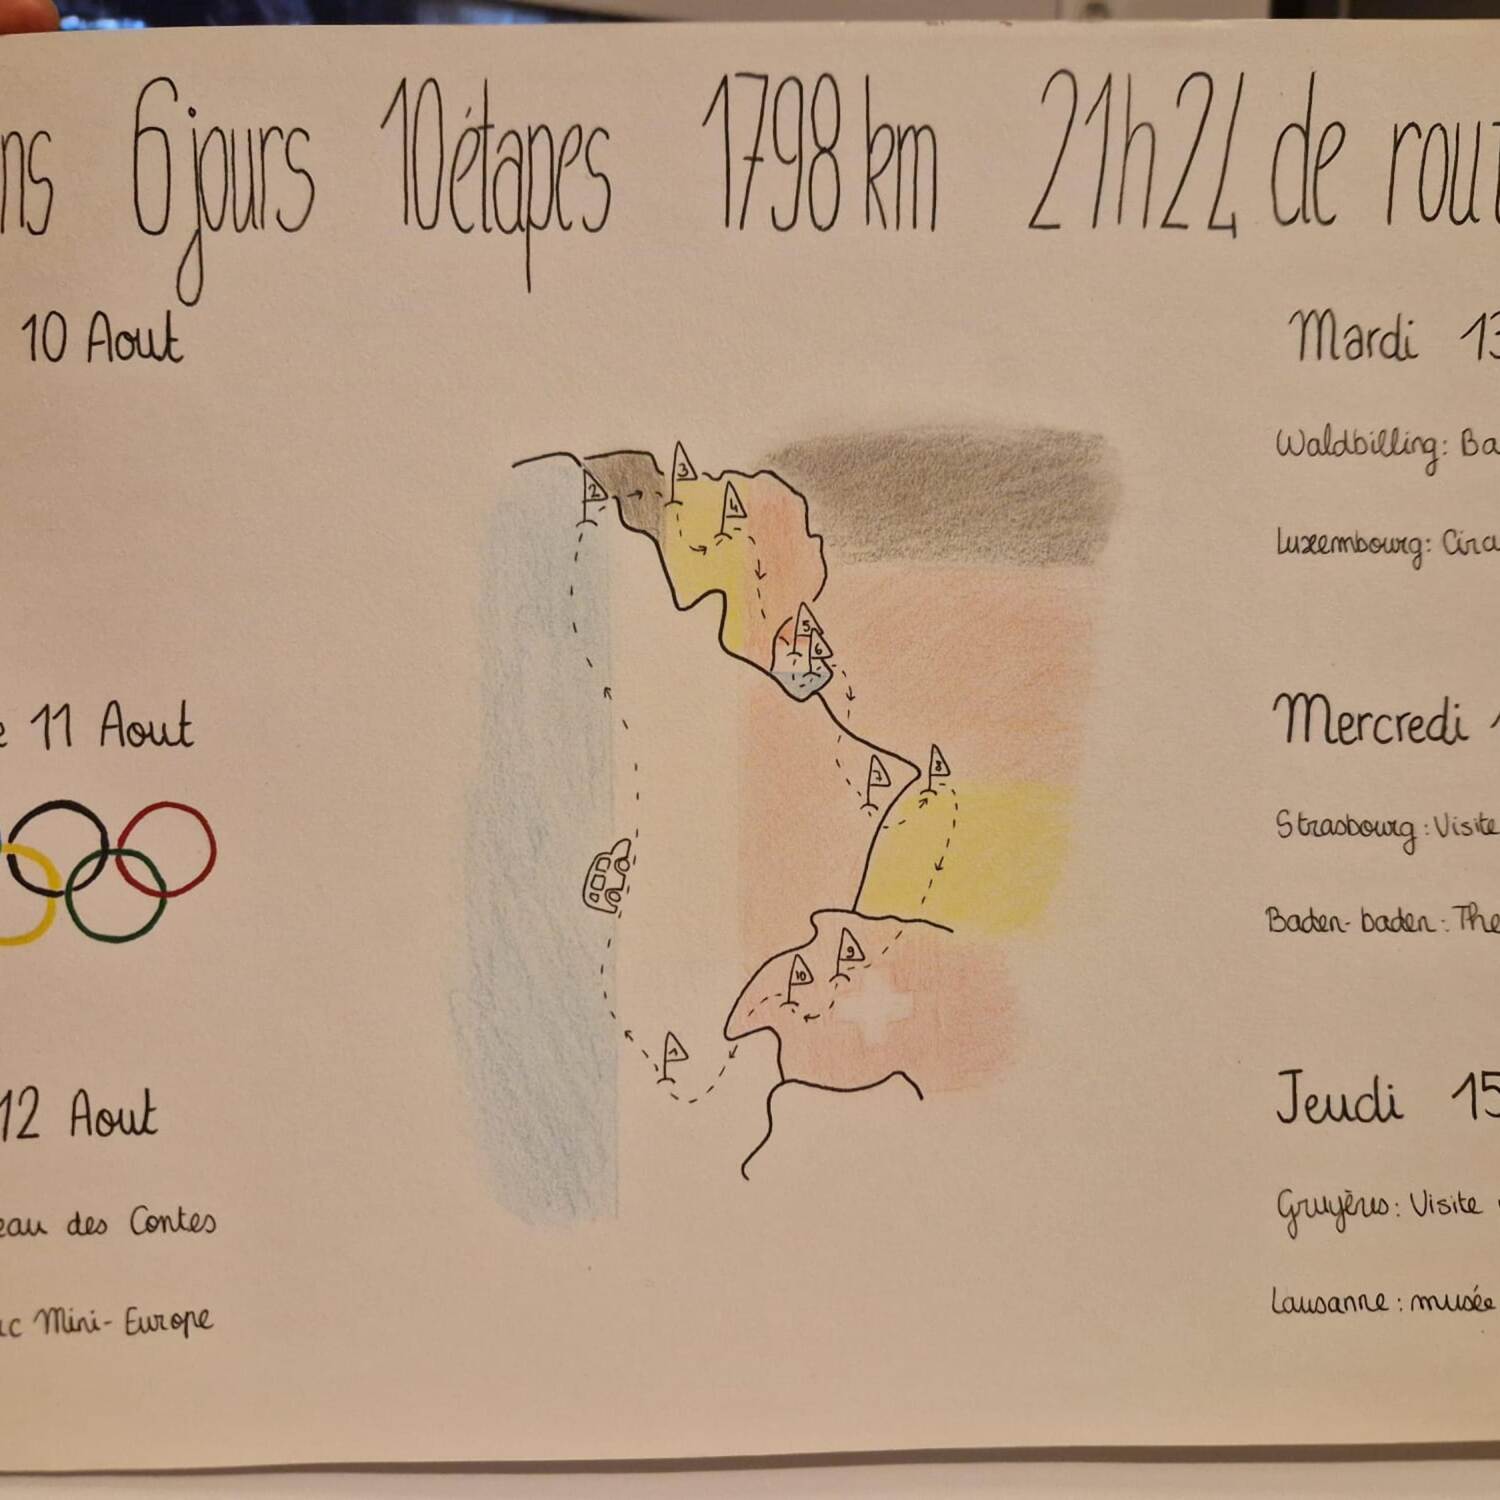 ns 6 jours 10 étapes 1798 km 21h24 de rout
10 Aout
e 11 Aout
12 Aout
eau des Contes
c Mini-Europe
2
3
4
5
6
7
8
9
10
1
Mardi 13
Waldbilling: Ba
Luxembourg: Circ
Mercredi 1
Strasbourg: Visite
Baden-baden: The
Jeudi 15
Gruyères: Visite
Lausanne: musée